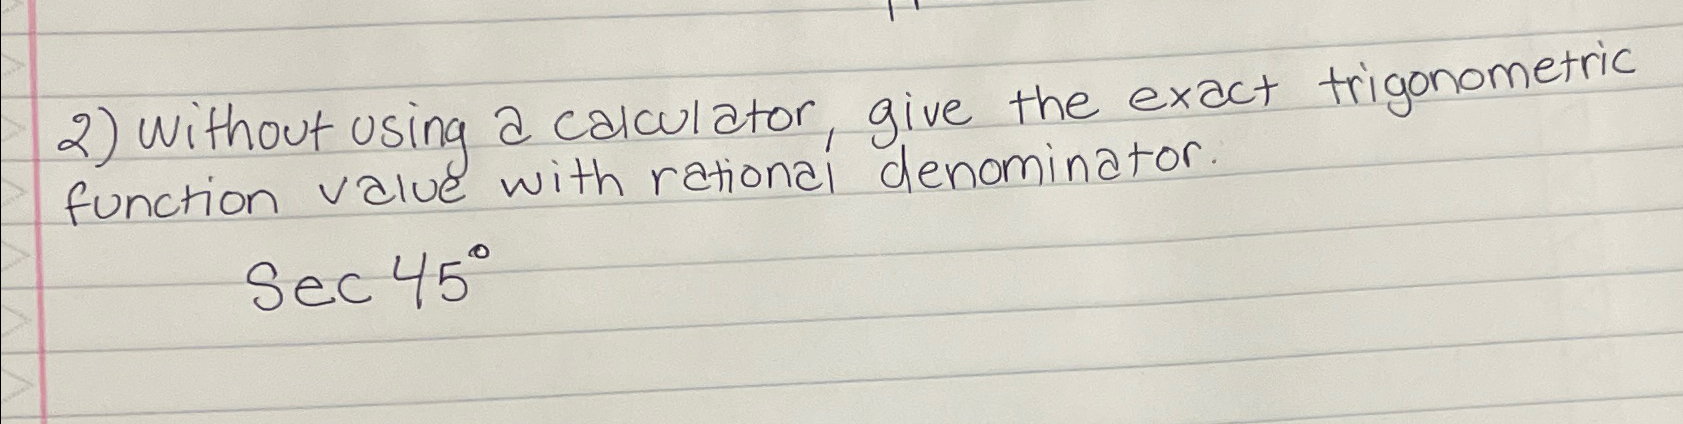 2) Without using a calculator, give the exact trigonometric
function value with rational denominator.
Sec 45°